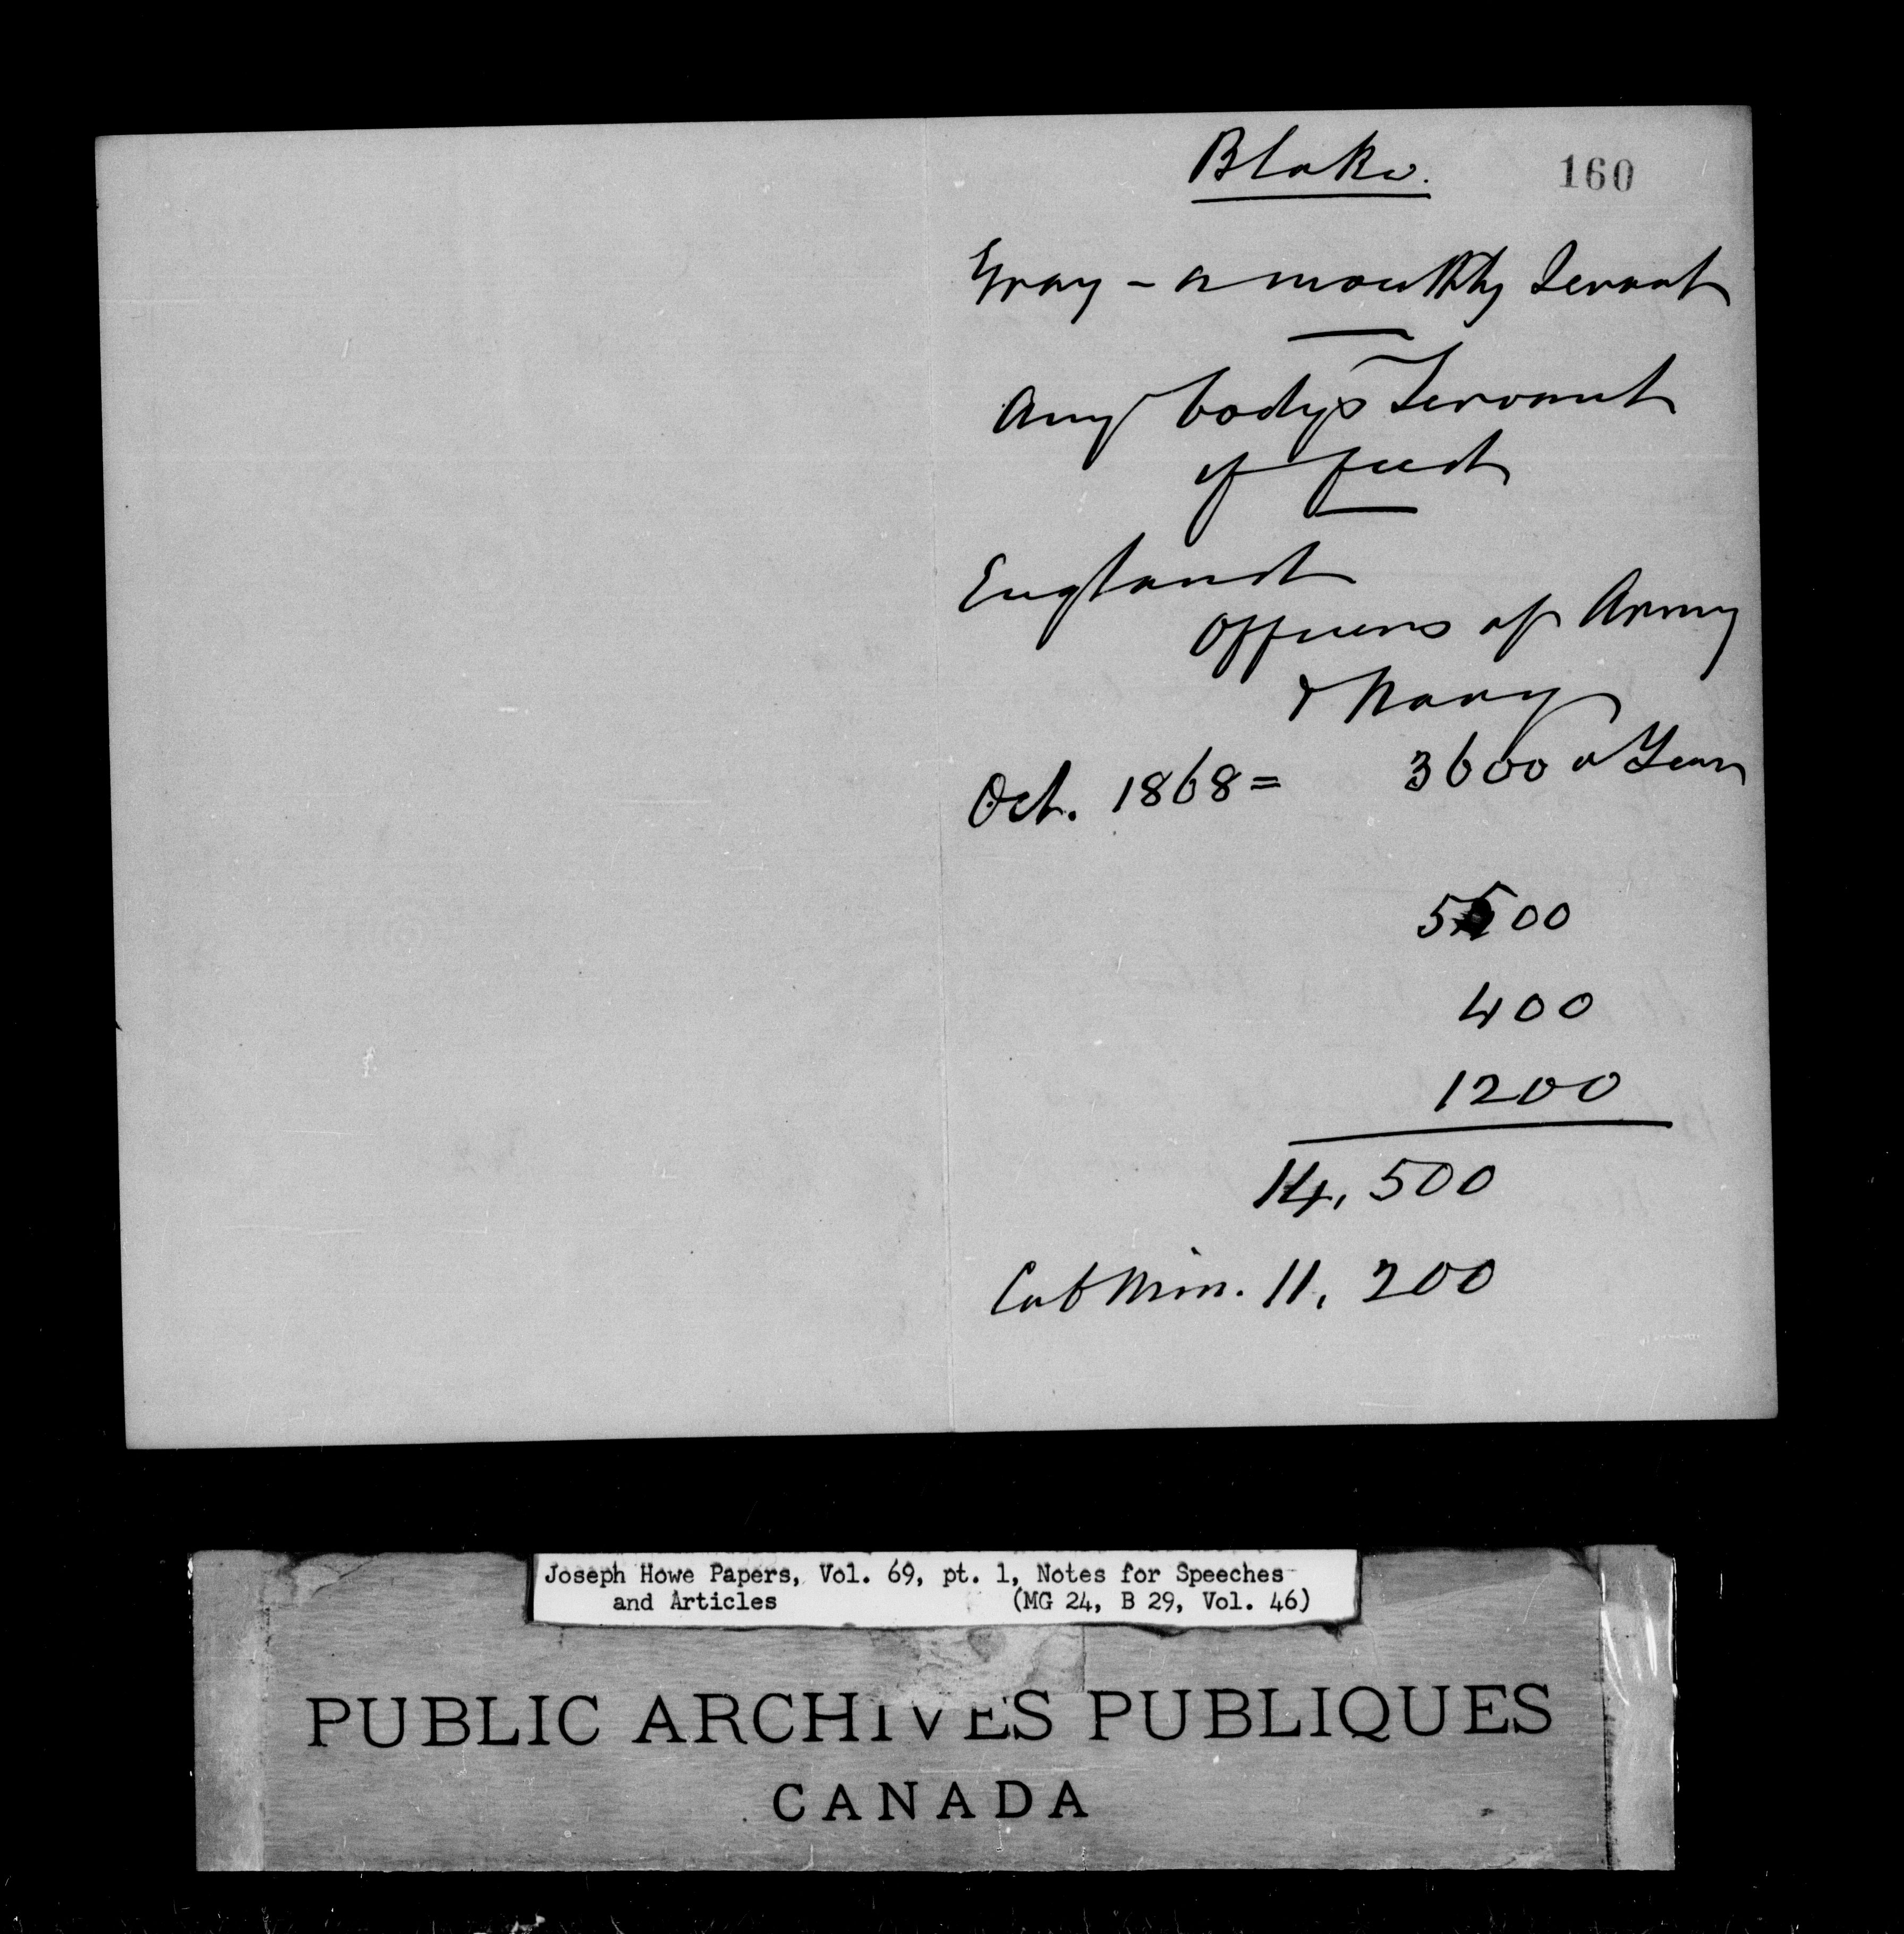 Blake.
160
Gray - a monthly Servant
Any body's Servant
if feed
England
Officers of Army
& Navy
Oct. 1868 = 3600 a Year
5500
400
1200
14,500
Cab Min. 11,200
Joseph Howe Papers, Vol. 69, pt. 1, Notes for Speeches
and Articles (MG 24, B 29, Vol. 46)
PUBLIC ARCHIVES PUBLIQUES
CANADA